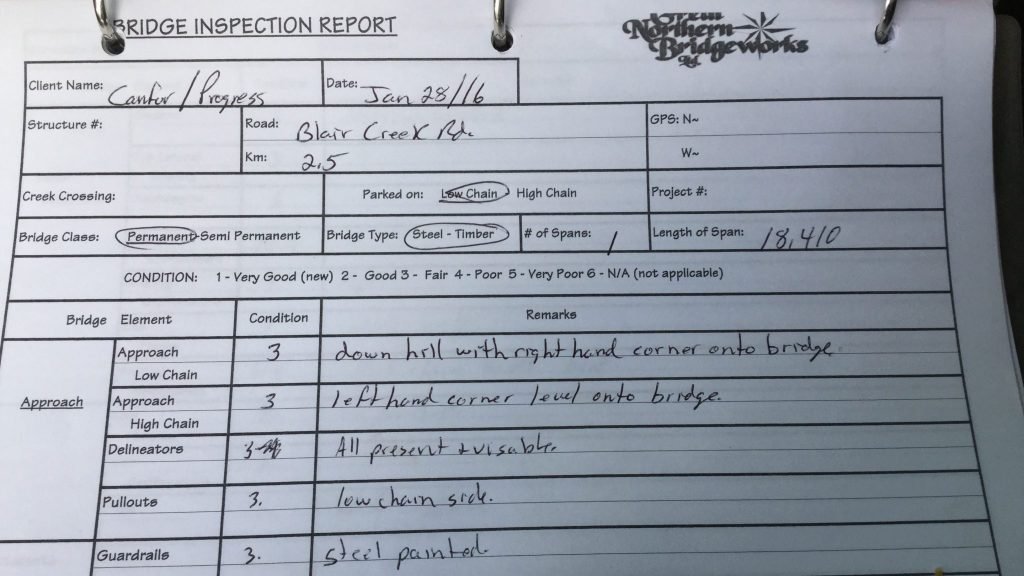 BRIDGE INSPECTION REPORT
Northern
Bridgeworks
Ltd.
Client Name: Canfor/Progress Date: Jan 28/16
Structure #: Road: Blair Creek Rd. GPS: N~
Km: 2.5 W~
Creek Crossing: Parked on: Low Chain High Chain Project #:
Bridge Class: Permanent-Semi Permanent Bridge Type: Steel - Timber # of Spans: 1 Length of Span: 18,410
CONDITION: 1 - Very Good (new) 2 - Good 3 - Fair 4 - Poor 5 - Very Poor 6 - N/A (not applicable)
Bridge Element Condition Remarks
Approach 3 down hill with right hand corner onto bridge
Low Chain
Approach Approach 3 left hand corner level onto bridge.
High Chain
Delineators 3 All present & visable.
Pullouts 3. low chain side.
Guardrails 3. steel painted